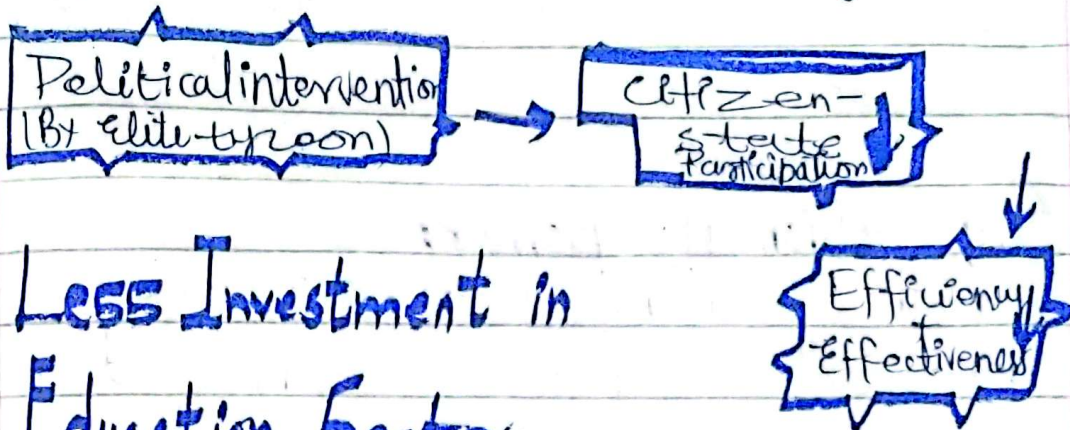 Political intervention
(By Elite-tycoon)
Citizen-
state
Participation
Efficiency
+
Effectiveness
Less Investment in
Education Sector